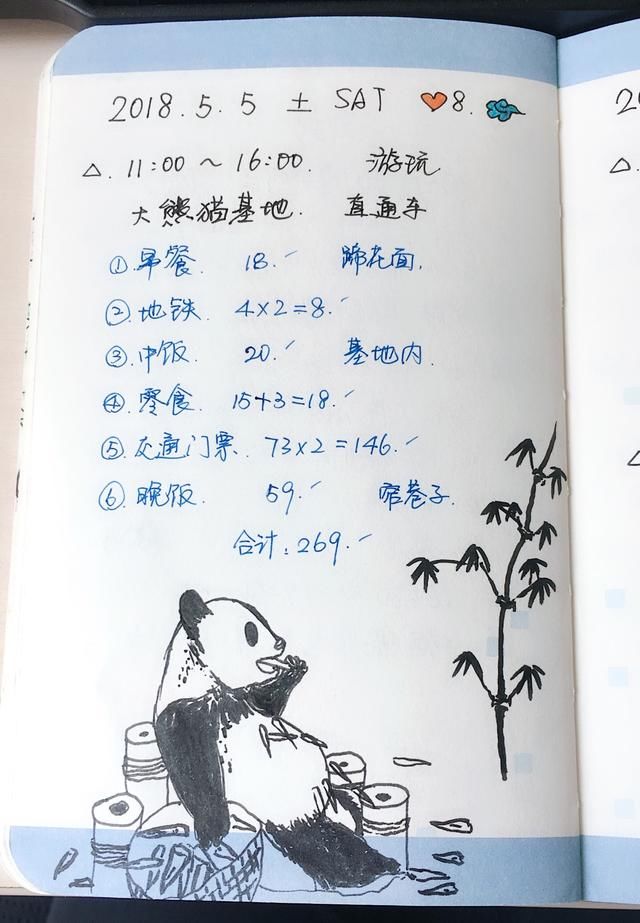 2018.5.5 土 SAT 8.
△. 11:00 ~ 16:00. 游玩
大熊猫基地. 直通车
①早餐. 18. 蹄花面.
②地铁. 4×2=8.
③中饭. 20. 基地内.
④零食. 15+3=18.
⑤交通门票. 73×2=146.
⑥晚饭. 59. 窄巷子.
合计: 269.
20
△.